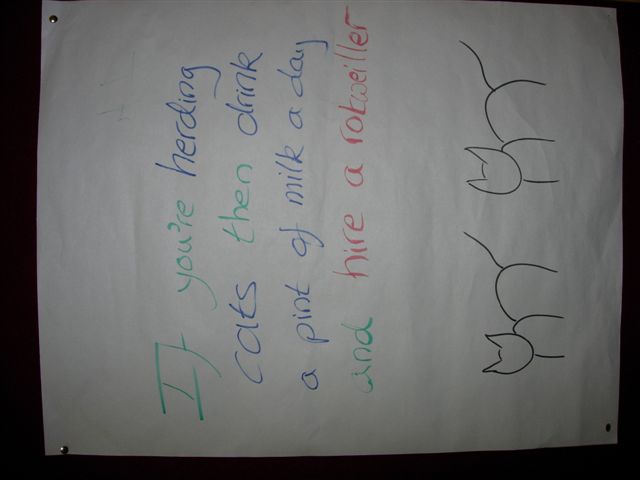 If you're herding
cats then drink
a pint of milk a day
and hire a rotweiller